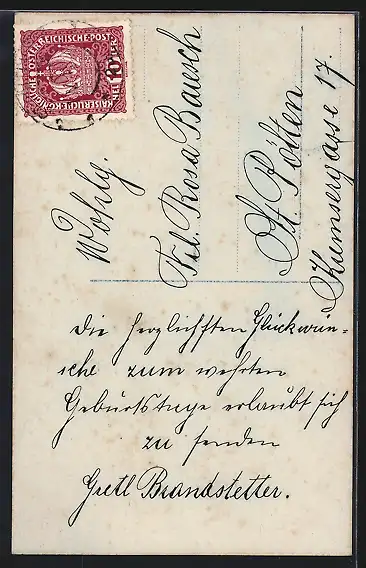 KAISERLICHE KÖNIGLICHE ÖSTERREICHISCHE POST
10 HELLER
Wohlg.
Frl. Rosa Bauesch
St. Pölten
Kremsergasse 17.
Die herzlichsten Glückwün-
sche zum wehrten
Geburtstage erlaubt sich
zu senden
Gretl Brandstetter.